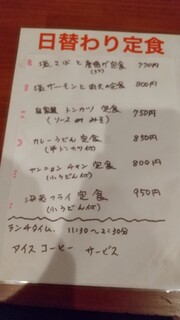 日替わり定食
塩サバと唐揚げ定食 750円
塩サーモンと 定食 800円
自家製 トンカツ 定食 750円
(ソース or みそ)
カレーうどん定食 850円
ヤンニョンチキン定食 800円
(小うどん付)
海老フライ定食 950円
(小うどん付)
ランチタイム、11:30〜2:30分
アイスコーヒー サービス